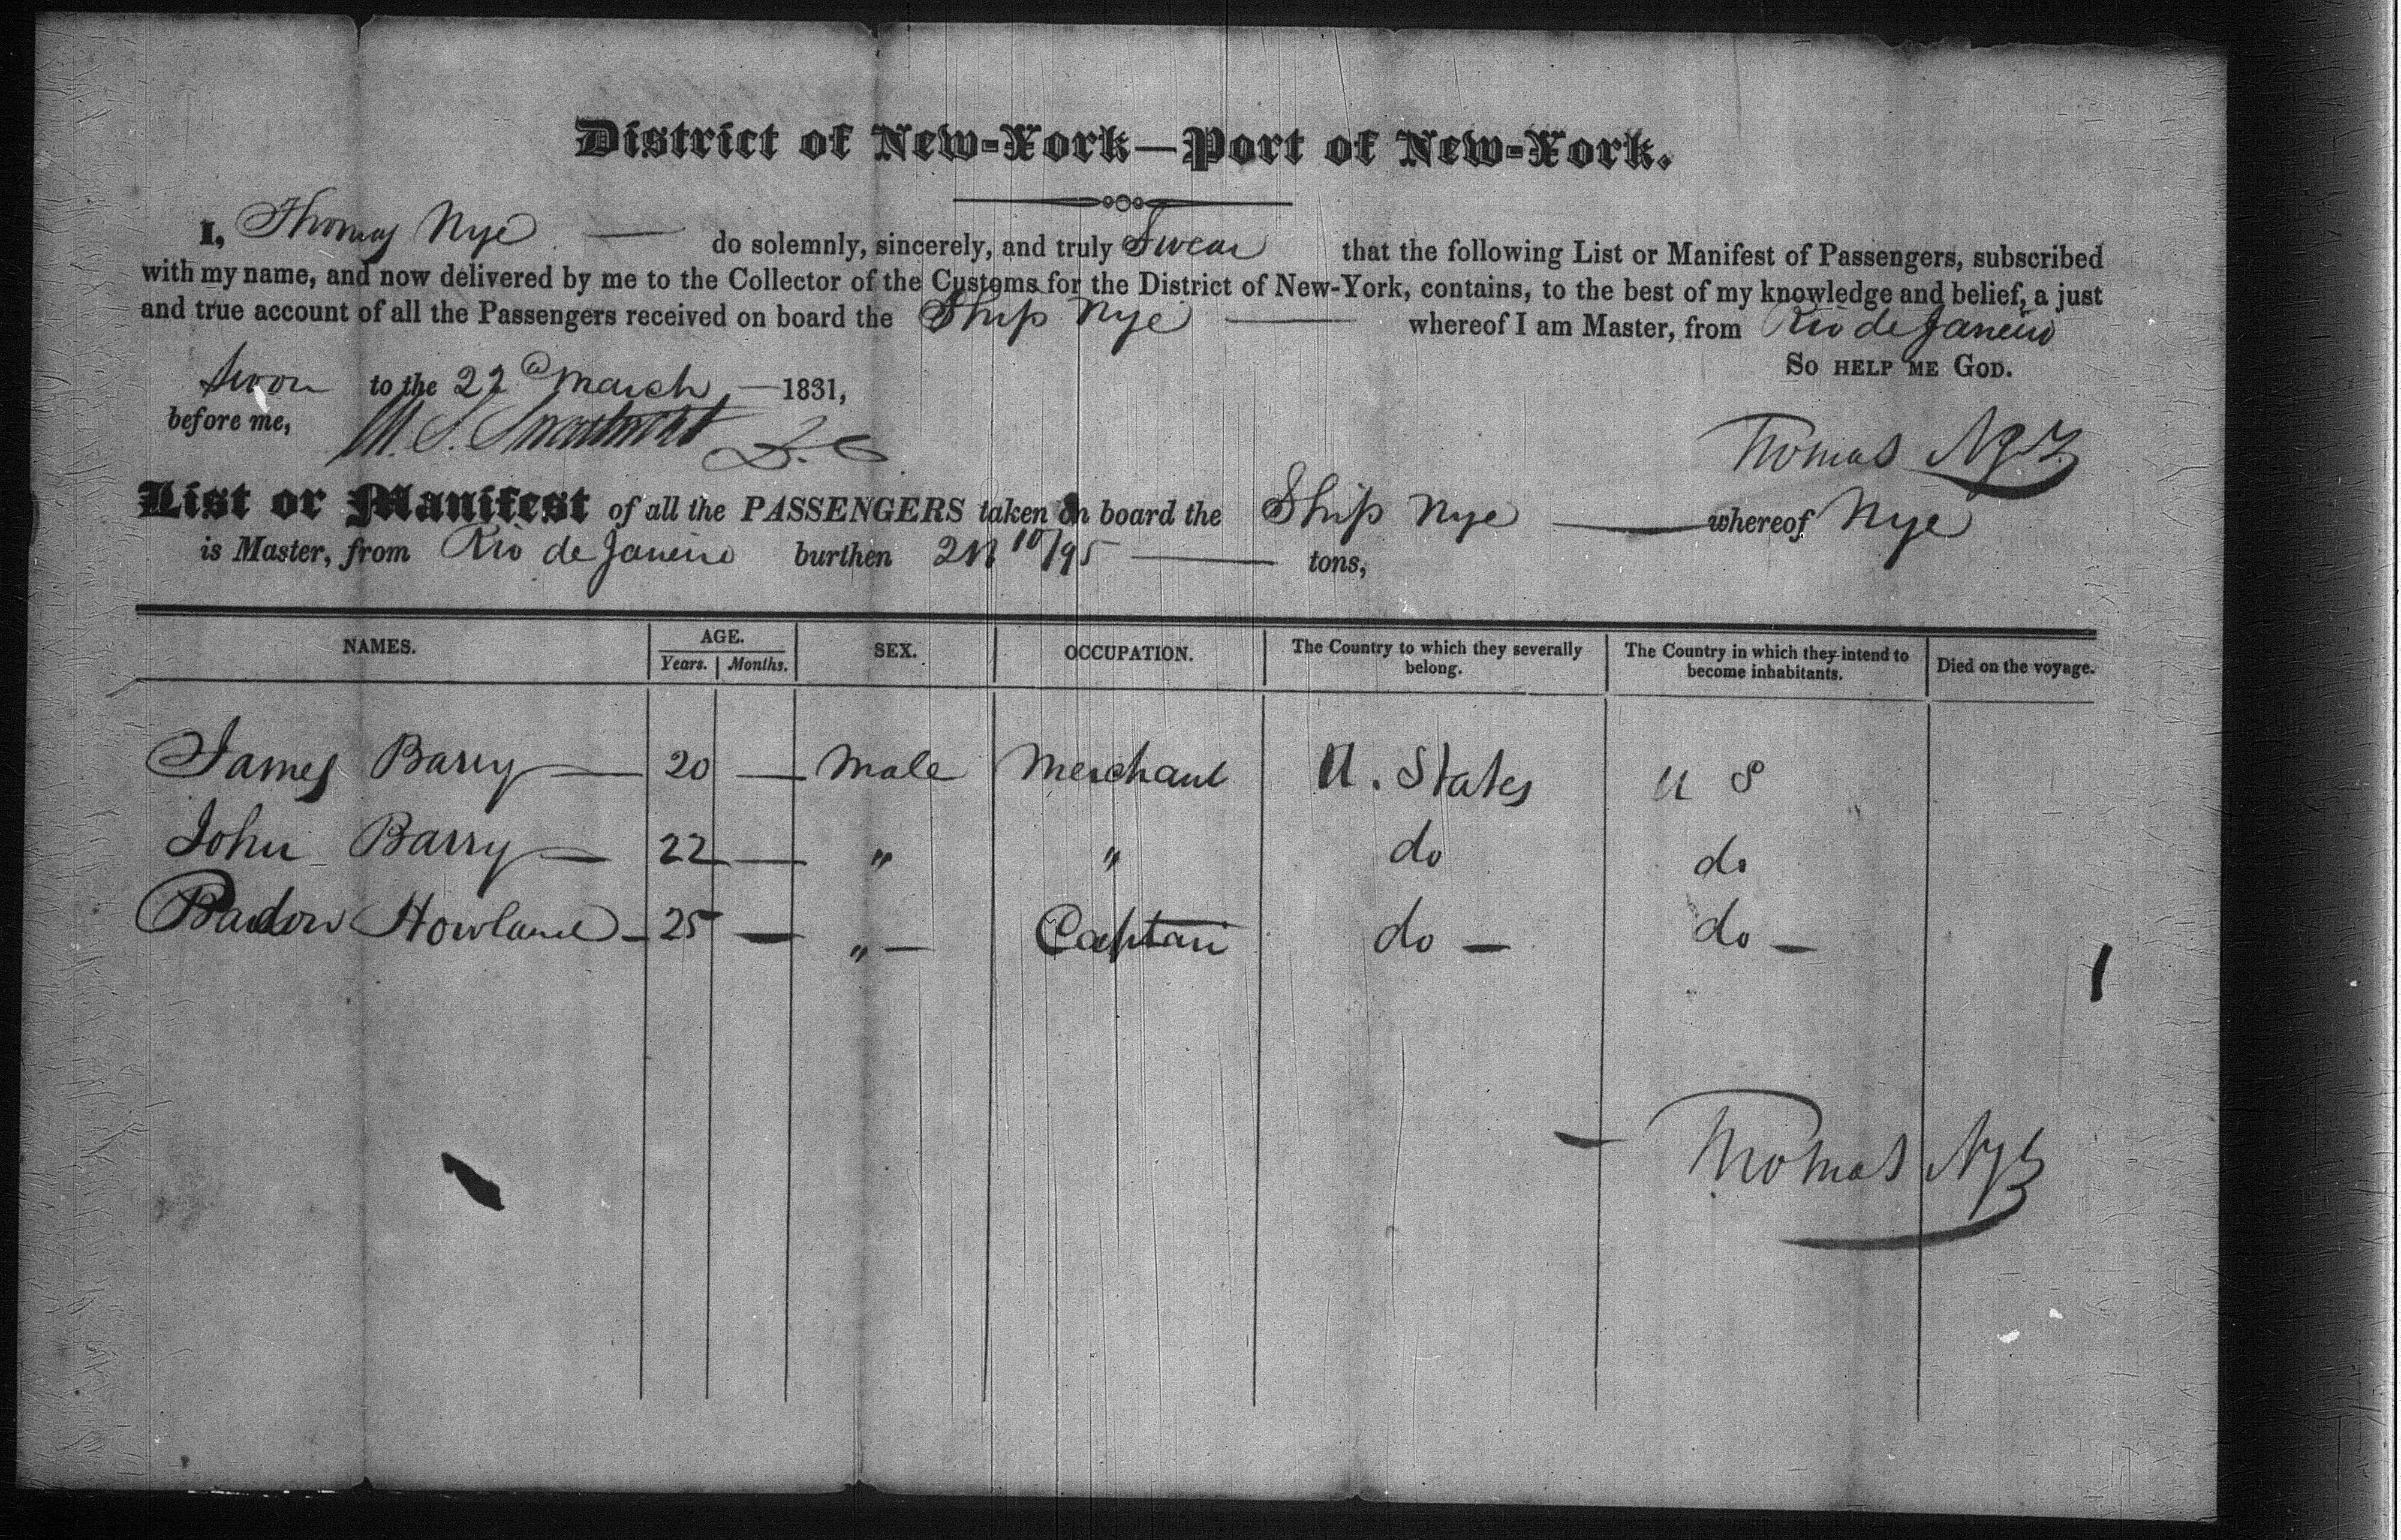 District of New-York—Port of New-York.
I, Thomas Nye — do solemnly, sincerely, and truly Swear that the following List or Manifest of Passengers, subscribed
with my name, and now delivered by me to the Collector of the Customs for the District of New-York, contains, to the best of my knowledge and belief, a just
and true account of all the Passengers received on board the Ship Nye — whereof I am Master, from Rio de Janeiro
So help me God.
Sworn to the 22d March — 1831,
before me, M. S. Swartwout D. C.
Thomas Nye
List or Manifest of all the PASSENGERS taken on board the Ship Nye — whereof Nye
is Master, from Rio de Janeiro burthen 10/95 — tons,
NAMES. AGE. Years. Months. SEX. OCCUPATION. The Country to which they severally belong. The Country in which they intend to become inhabitants. Died on the voyage.
James Barry — 20 — Male Merchant U. States U S
John Barry — 22 — " " do do
Howland — 25 — " — Captain do — do —
Thomas Nye